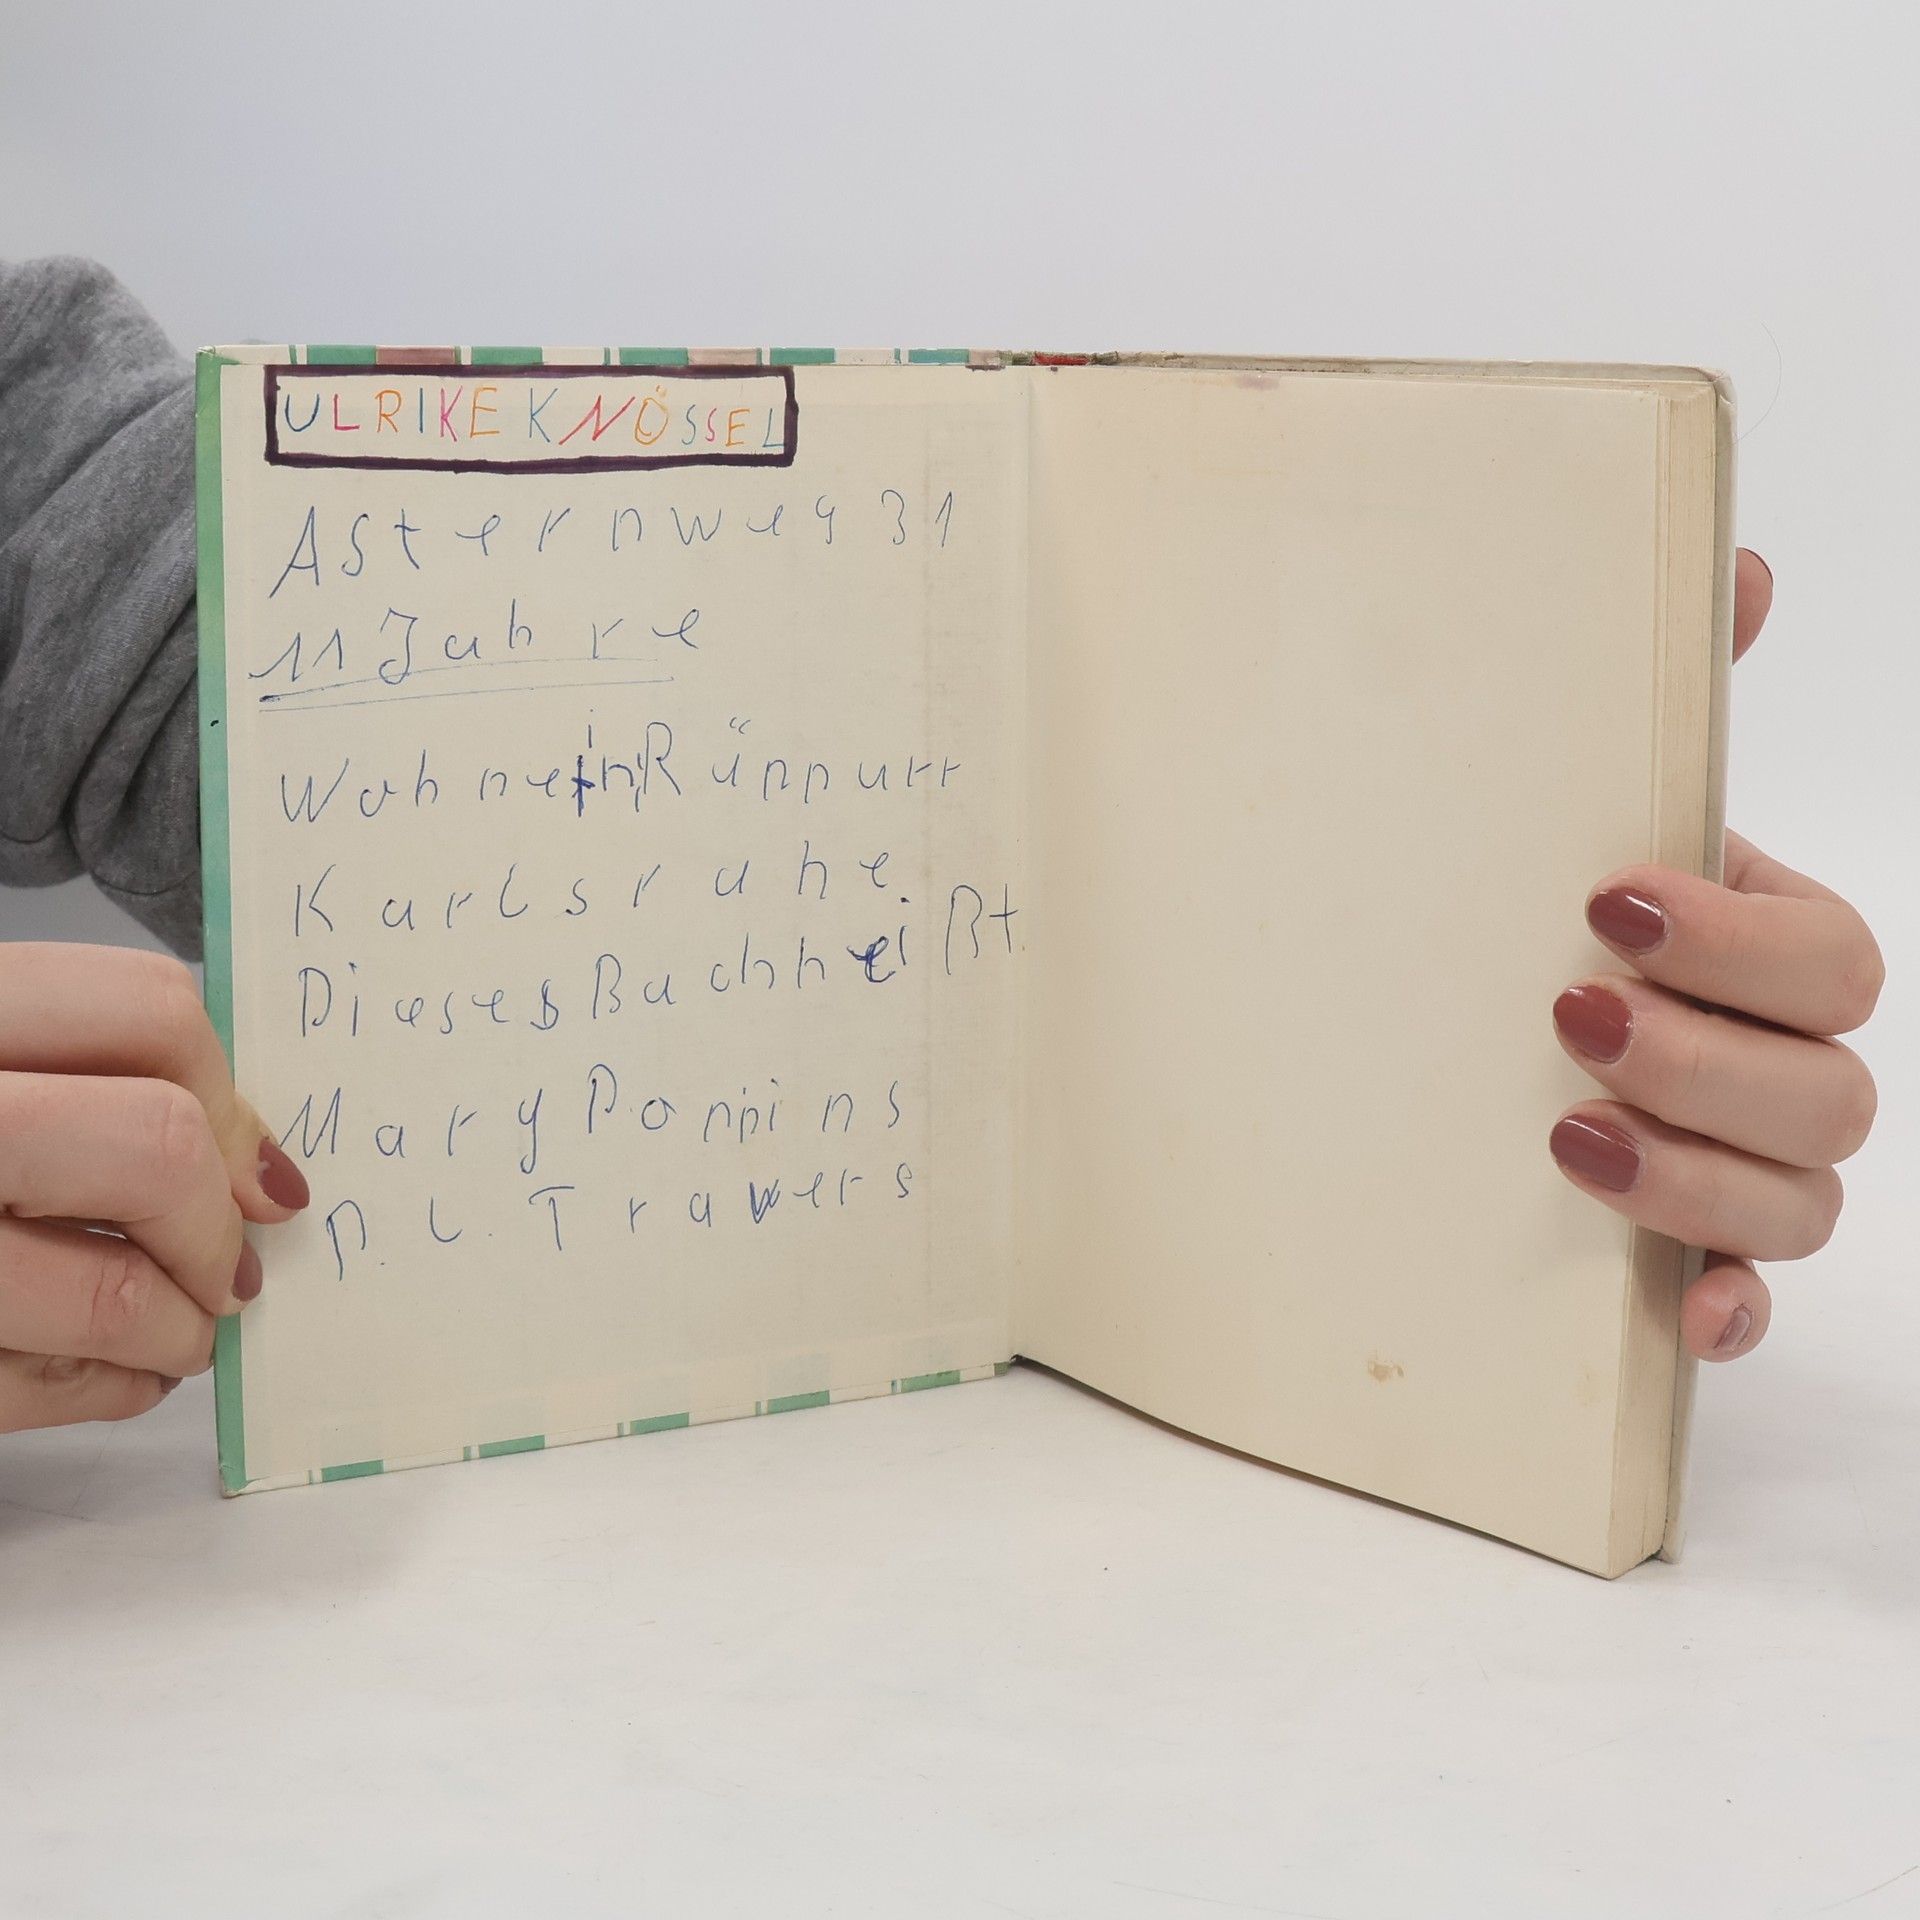 ULRIKE KNÖSSEL
Asternweg 31
11 Jahre
Wohne in Rüppurr
Karlsruhe.
Dieses Buch heißt
Mary Poppins
P. L. Trawers